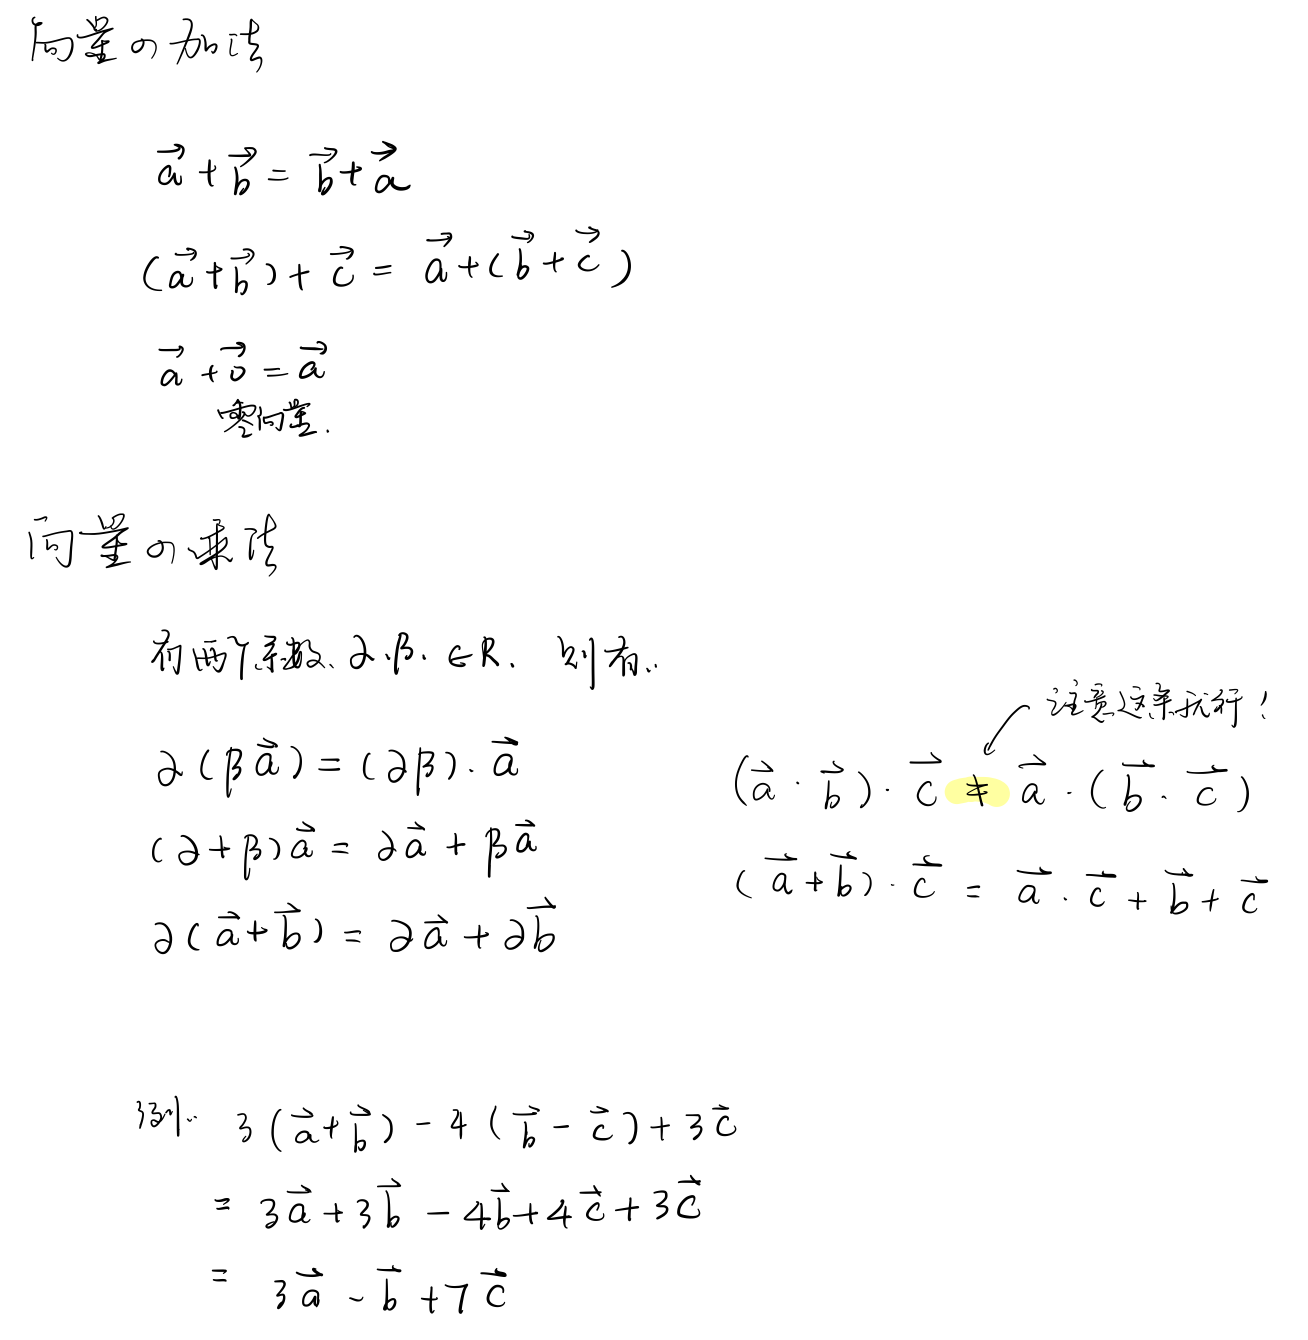 向量の加法
$\vec{a} + \vec{b} = \vec{b} + \vec{a}$
$(\vec{a} + \vec{b}) + \vec{c} = \vec{a} + (\vec{b} + \vec{c})$
$\vec{a} + \vec{0} = \vec{a}$
零向量.
向量の乘法
有两个系数、∂.β. ∈R. 则有..
$∂(β\vec{a}) = (∂β) \cdot \vec{a}$
$(∂ + β)\vec{a} = ∂\vec{a} + β\vec{a}$
$∂(\vec{a} + \vec{b}) = ∂\vec{a} + ∂\vec{b}$
注意这条不行！
$(\vec{a} \cdot \vec{b}) \cdot \vec{c} \neq \vec{a} \cdot (\vec{b} \cdot \vec{c})$
$(\vec{a} + \vec{b}) \cdot \vec{c} = \vec{a} \cdot \vec{c} + \vec{b} + \vec{c}$
例.. $3(\vec{a} + \vec{b}) - 4(\vec{b} - \vec{c}) + 3\vec{c}$
$= 3\vec{a} + 3\vec{b} - 4\vec{b} + 4\vec{c} + 3\vec{c}$
$= 3\vec{a} - \vec{b} + 7\vec{c}$